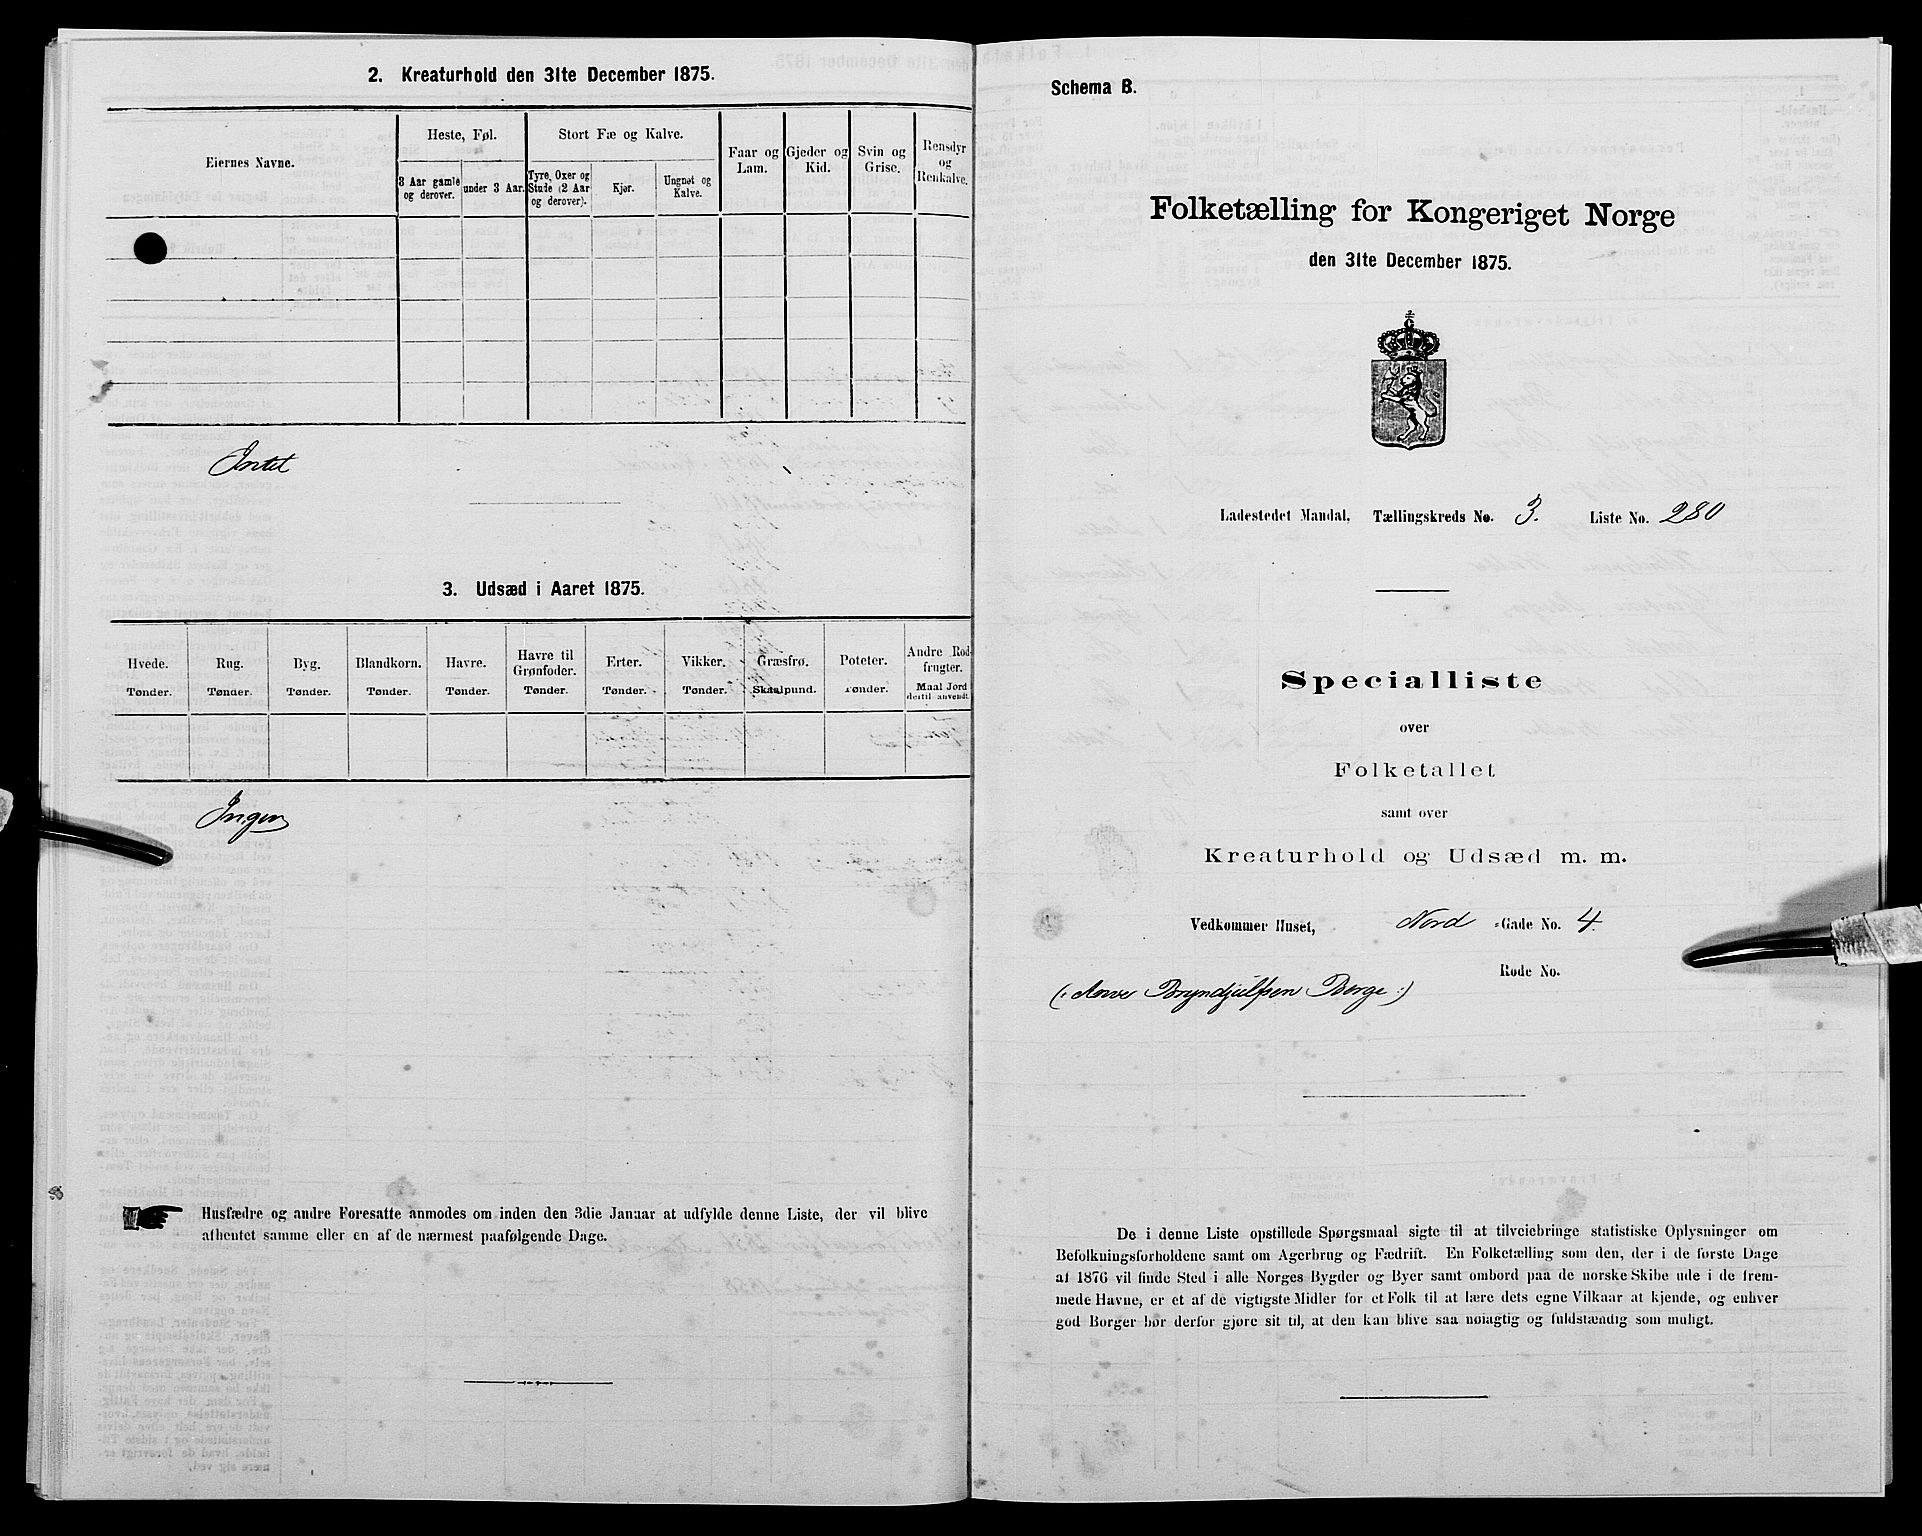 2. Kreaturhold den 31te December 1875.
Eiernes Navne.
Heste, Føl.
3 Aar gamle og derover.
under 3 Aar.
Stort Fæ og Kalve.
Tyre, Oxer og Stude (2 Aar og derover).
Kjør.
Ungnøt og Kalve.
Faar og Lam.
Gjeder og Kid.
Svin og Grise.
Rensdyr og Renkalve.
Intet
3. Udsæd i Aaret 1875.
Hvede. Tønder.
Rug. Tønder.
Byg. Tønder.
Blandkorn. Tønder.
Havre. Tønder.
Havre til Grønfoder. Tønder.
Erter. Tønder.
Vikker. Tønder.
Græsfrø. Skaalpund.
Poteter. Tønder.
Andre Rodfrugter. Maal Jord dertil anvendt.
Ingen
Husfædre og andre Foresatte anmodes om inden den 3die Januar at udfylde denne Liste, der vil blive
afhentet samme eller en af de nærmest paafølgende Dage.
Schema B.
Folketælling for Kongeriget Norge
den 31te December 1875.
Ladestedet Mandal, Tællingskreds No. 3. Liste No. 280
Specialliste
over
Folketallet
samt over
Kreaturhold og Udsæd m. m.
Vedkommer Huset, Nord -Gade No. 4.
Rode No.
(: Anve Bryndjulfsen Berge :)
De i denne Liste opstillede Spørgsmaal sigte til at tilveiebringe statistiske Oplysninger om
Befolkningsforholdene samt om Agerbrug og Fædrift. En Folketælling som den, der i de første Dage
af 1876 vil finde Sted i alle Norges Bygder og Byer samt ombord paa de norske Skibe ude i de frem-
mede Havne, er et af de vigtigste Midler for et Folk til at lære dets egne Vilkaar at kjende, og enhver
god Borger bør derfor gjøre sit til, at den kan blive saa nøiagtig og fuldstændig som muligt.